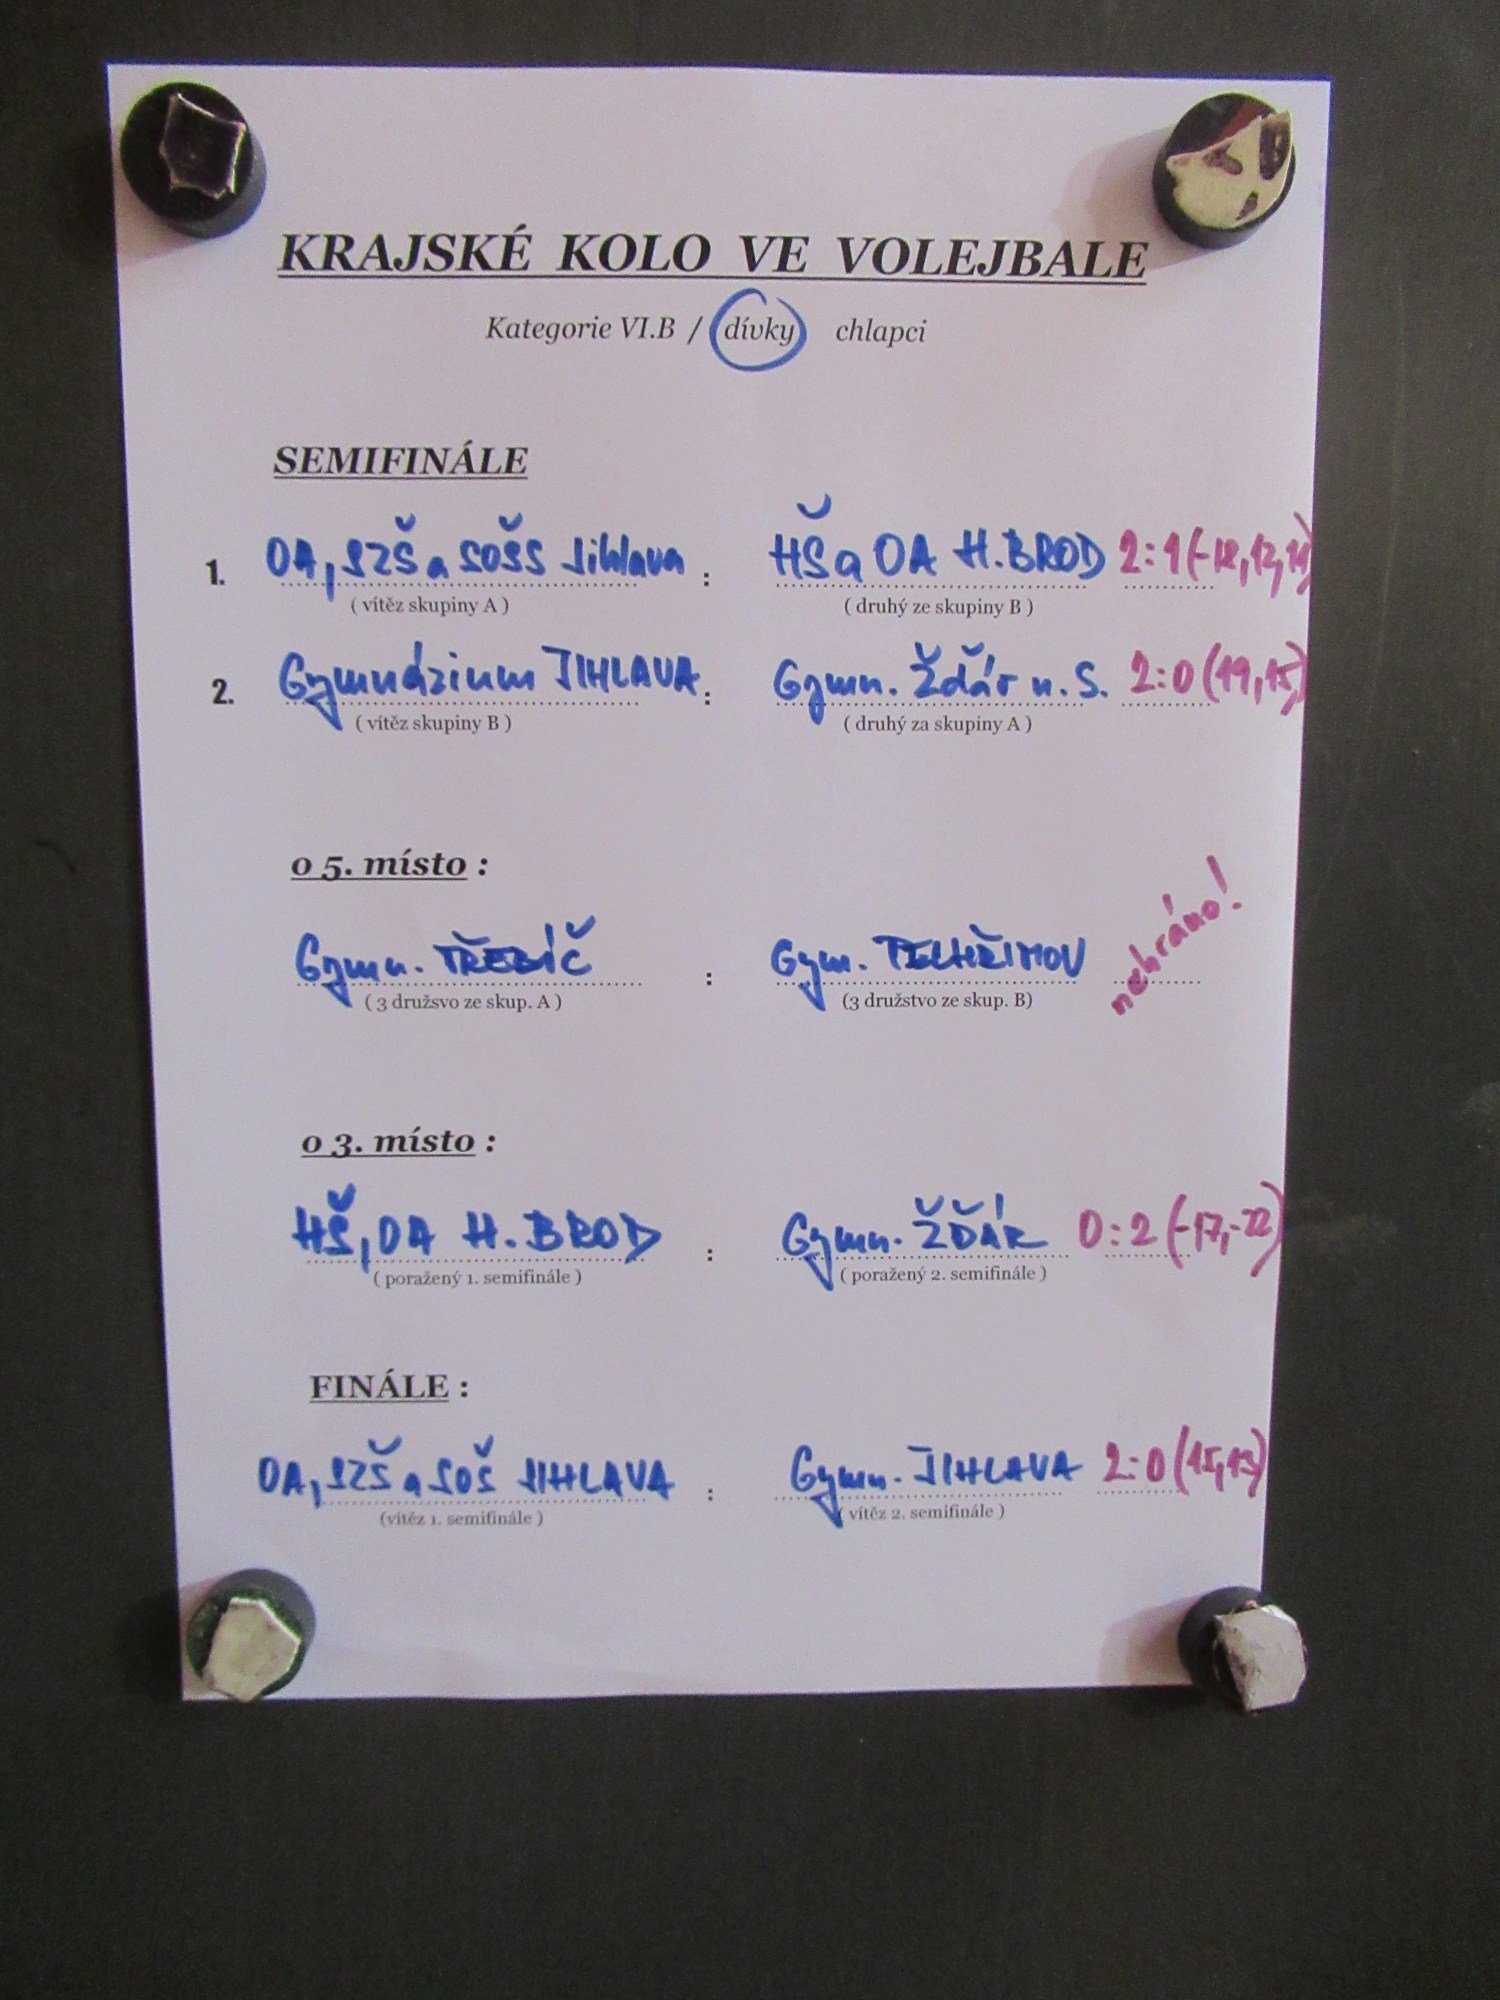 KRAJSKÉ KOLO VE VOLEJBALE
Kategorie VI.B / dívky chlapci
SEMIFINÁLE
1. OA, SZŠ a SOŠS Jihlava : HŠ a OA H. BROD 2:1 (-18, 12,
( vítěz skupiny A ) ( druhý ze skupiny B )
2. Gymnázium JIHLAVA : Gymn. Žďár n. S. 2:0 (19, 15)
( vítěz skupiny B ) ( druhý za skupiny A )
o 5. místo :
Gymn. TŘEBÍČ : Gym. PELHŘIMOV nehráno!
( 3 družsvo ze skup. A ) (3 družstvo ze skup. B)
o 3. místo :
HŠ, OA H. BROD : Gymn. ŽĎÁR 0:2 (-17, -22)
( poražený 1. semifinále ) ( poražený 2. semifinále )
FINÁLE :
OA, SZŠ a SOŠ JIHLAVA : Gymn. JIHLAVA 2:0 (15, 13)
(vítěz 1. semifinále ) ( vítěz 2. semifinále )